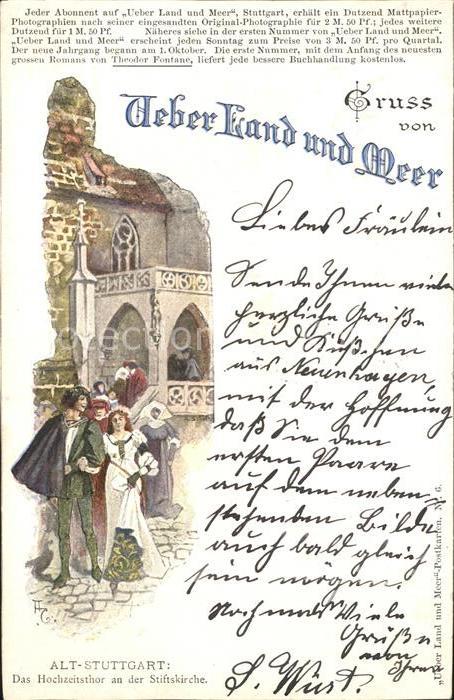 Jeder Abonnent auf „Ueber Land und Meer“, Stuttgart, erhält ein Dutzend Mattpapier-
Photographien nach seiner eingesandten Original-Photographie für 2 M. 50 Pf.; jedes weitere
Dutzend für 1 M. 50 Pf. Näheres siehe in der ersten Nummer von „Ueber Land und Meer“.
„Ueber Land und Meer“ erscheint jeden Sonntag zum Preise von 3 M. 50 Pf. pro Quartal.
Der neue Jahrgang begann am 1. Oktober. Die erste Nummer, mit dem Anfang des neuesten
grossen Romans von Theodor Fontane, liefert jede bessere Buchhandlung kostenlos.
Gruss
von
Ueber Land und Meer
Liebes Fräulein
Sende Ihnen viele
herzliche Grüße
und
aus Neuenhagen,
mit der Hoffnung
daß Sie dem
ersten Paare
auf dem neben-
stehenden Bilde
auch bald gleich
sein mögen.
Nochmals Viele
Grüße
von Ihrer
S. Wüst.
„Ueber Land und Meer“-Postkarten, Nr. 6.
ALT-STUTTGART:
Das Hochzeitsthor an der Stiftskirche.